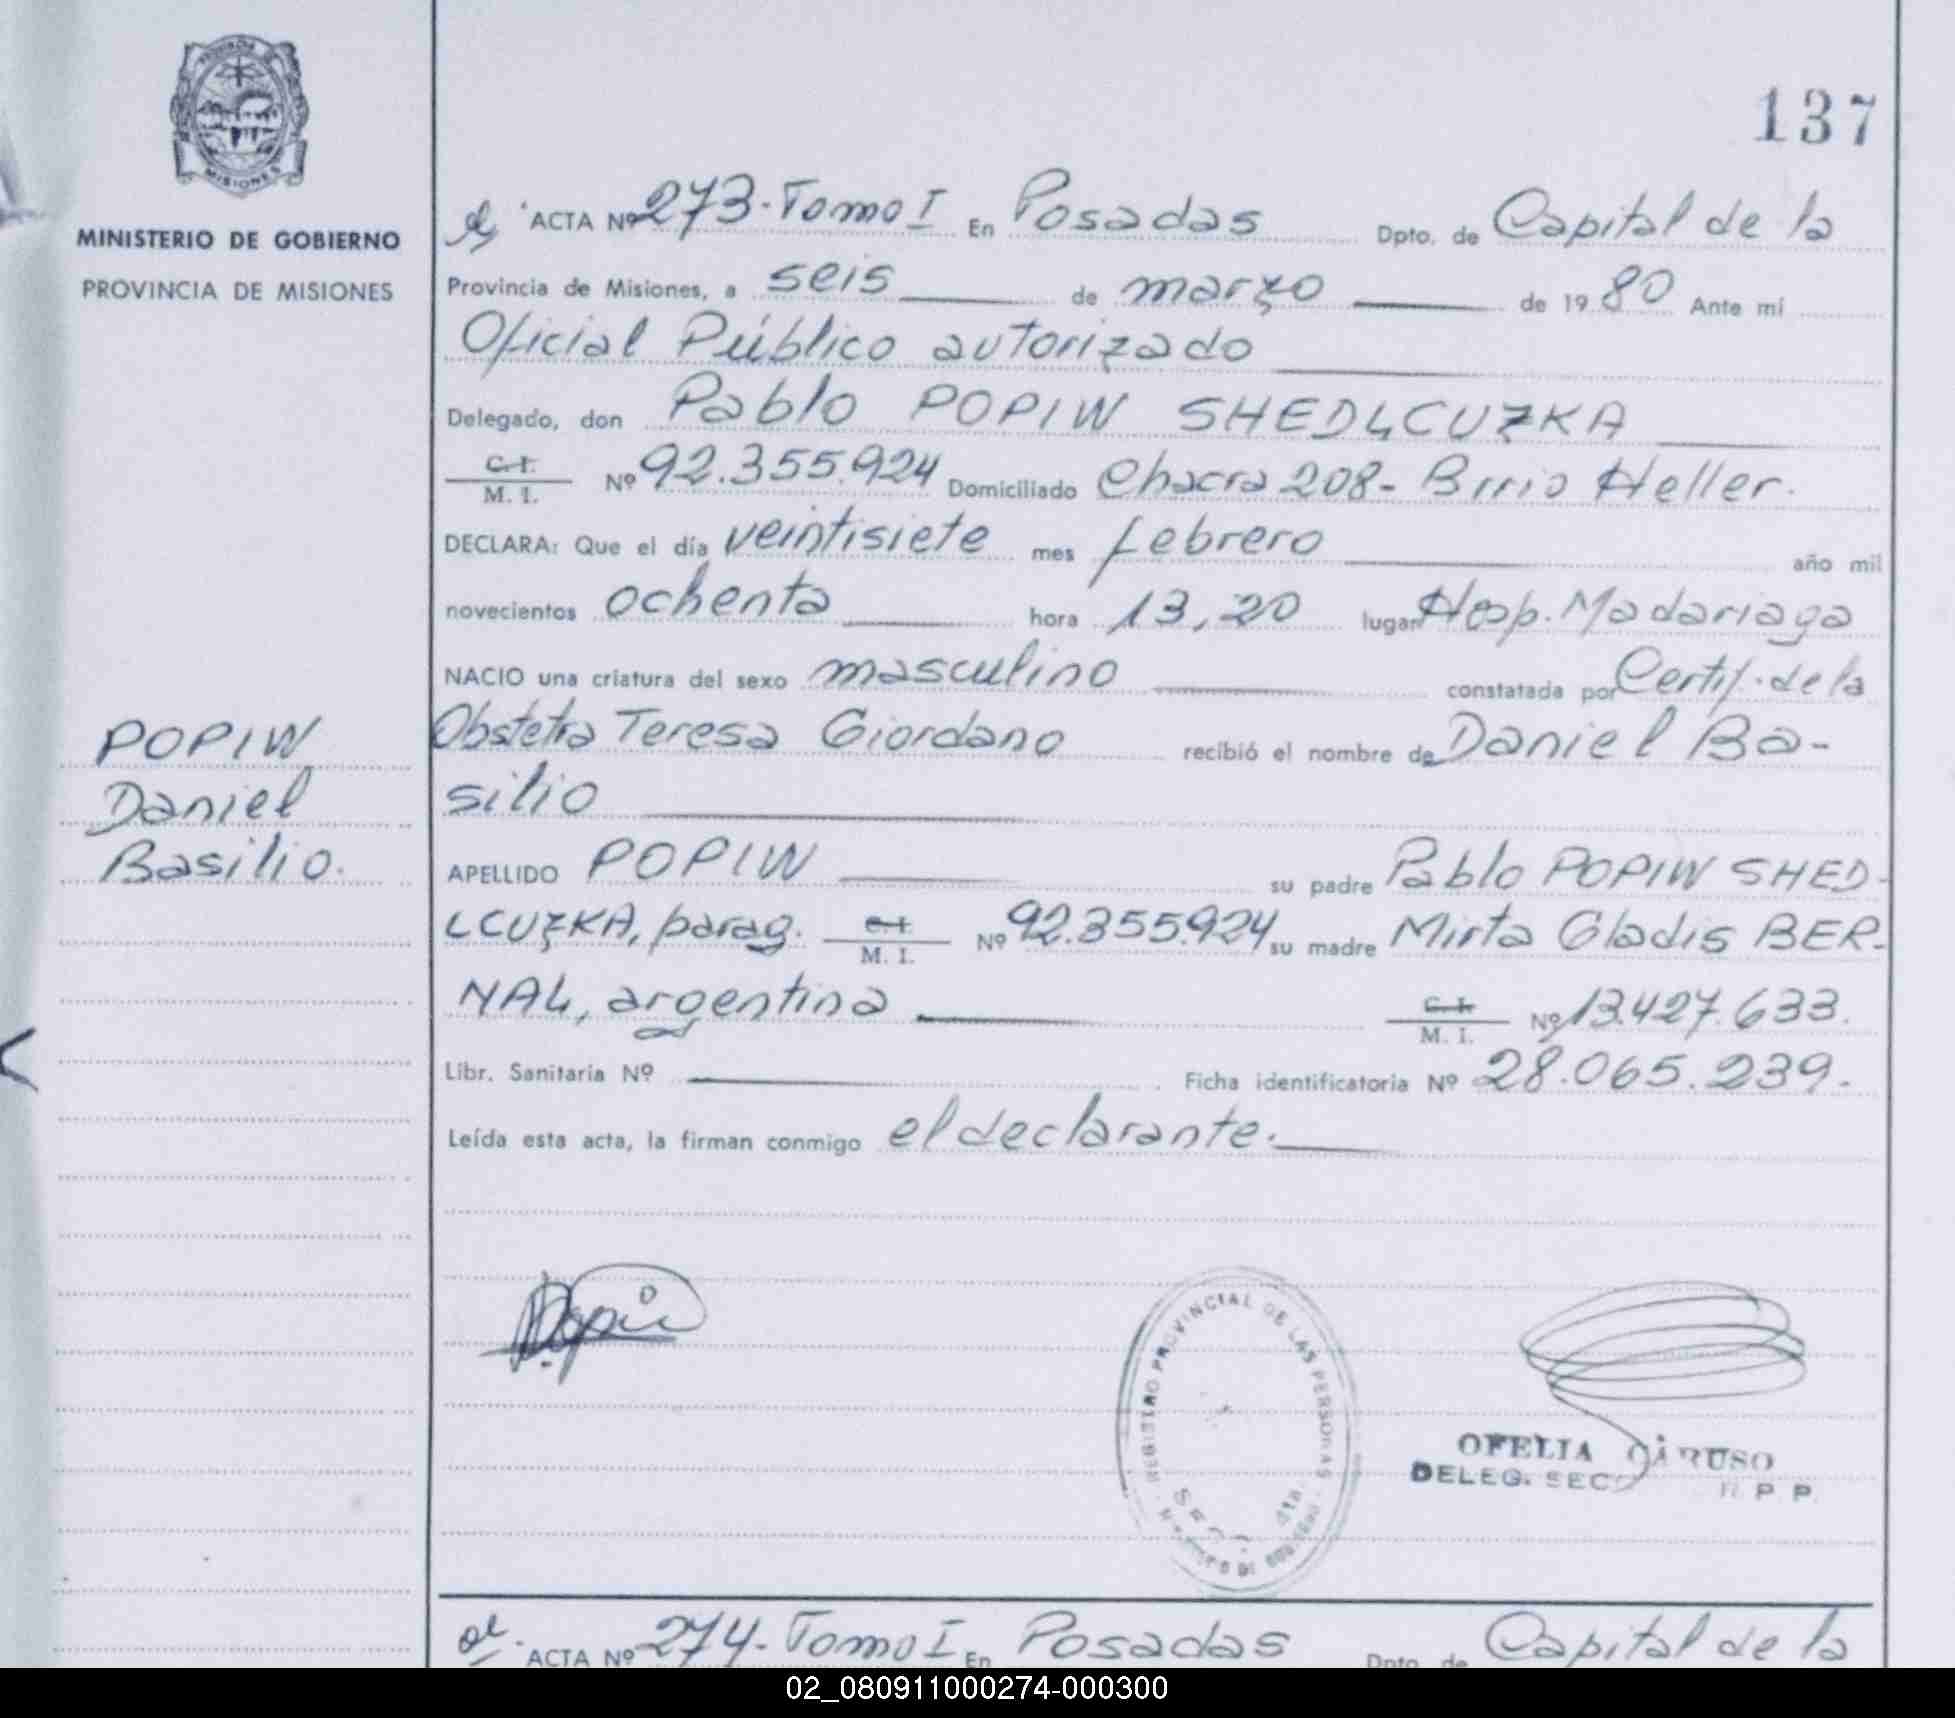 137
PROVINCIA DE
MISIONES
MINISTERIO DE GOBIERNO
PROVINCIA DE MISIONES
ACTA Nº 273-Tomo I En Posadas Dpto. de Capital de la
Provincia de Misiones, a seis de marzo de 1980 Ante mí
Oficial Público autorizado
Delegado, don Pablo POPIW SHEDLCUZKA
C.I.
M. I. Nº 92.355.924 Domiciliado Chacra 208- Brrio Heller.
DECLARA: Que el día veintisiete mes febrero año mil
novecientos ochenta hora 13,20 lugar Hosp. Madariaga
NACIO una criatura del sexo masculino constatada por Certif. de la
Obstetra Teresa Giordano recibió el nombre de Daniel Ba-
silio
POPIW
Daniel
Basilio.
APELLIDO POPIW su padre Pablo POPIW SHED-
LCUZKA, parag. C.I.
M. I. Nº 92.355.924 su madre Mirta Gladis BER-
NAL, argentina C.I.
M. I. Nº 13.427.633.
Libr. Sanitaria Nº Ficha identificatoria Nº 28.065.239.
Leída esta acta, la firman conmigo el declarante.
REGISTRO PROVINCIAL DE LAS PERSONAS
SECC. 4ta.
OFELIA CARUSO
DELEG. SECC R. P. P.
ACTA Nº 274-Tomo I En Posadas Dpto. de Capital de la
02_080911000274-000300